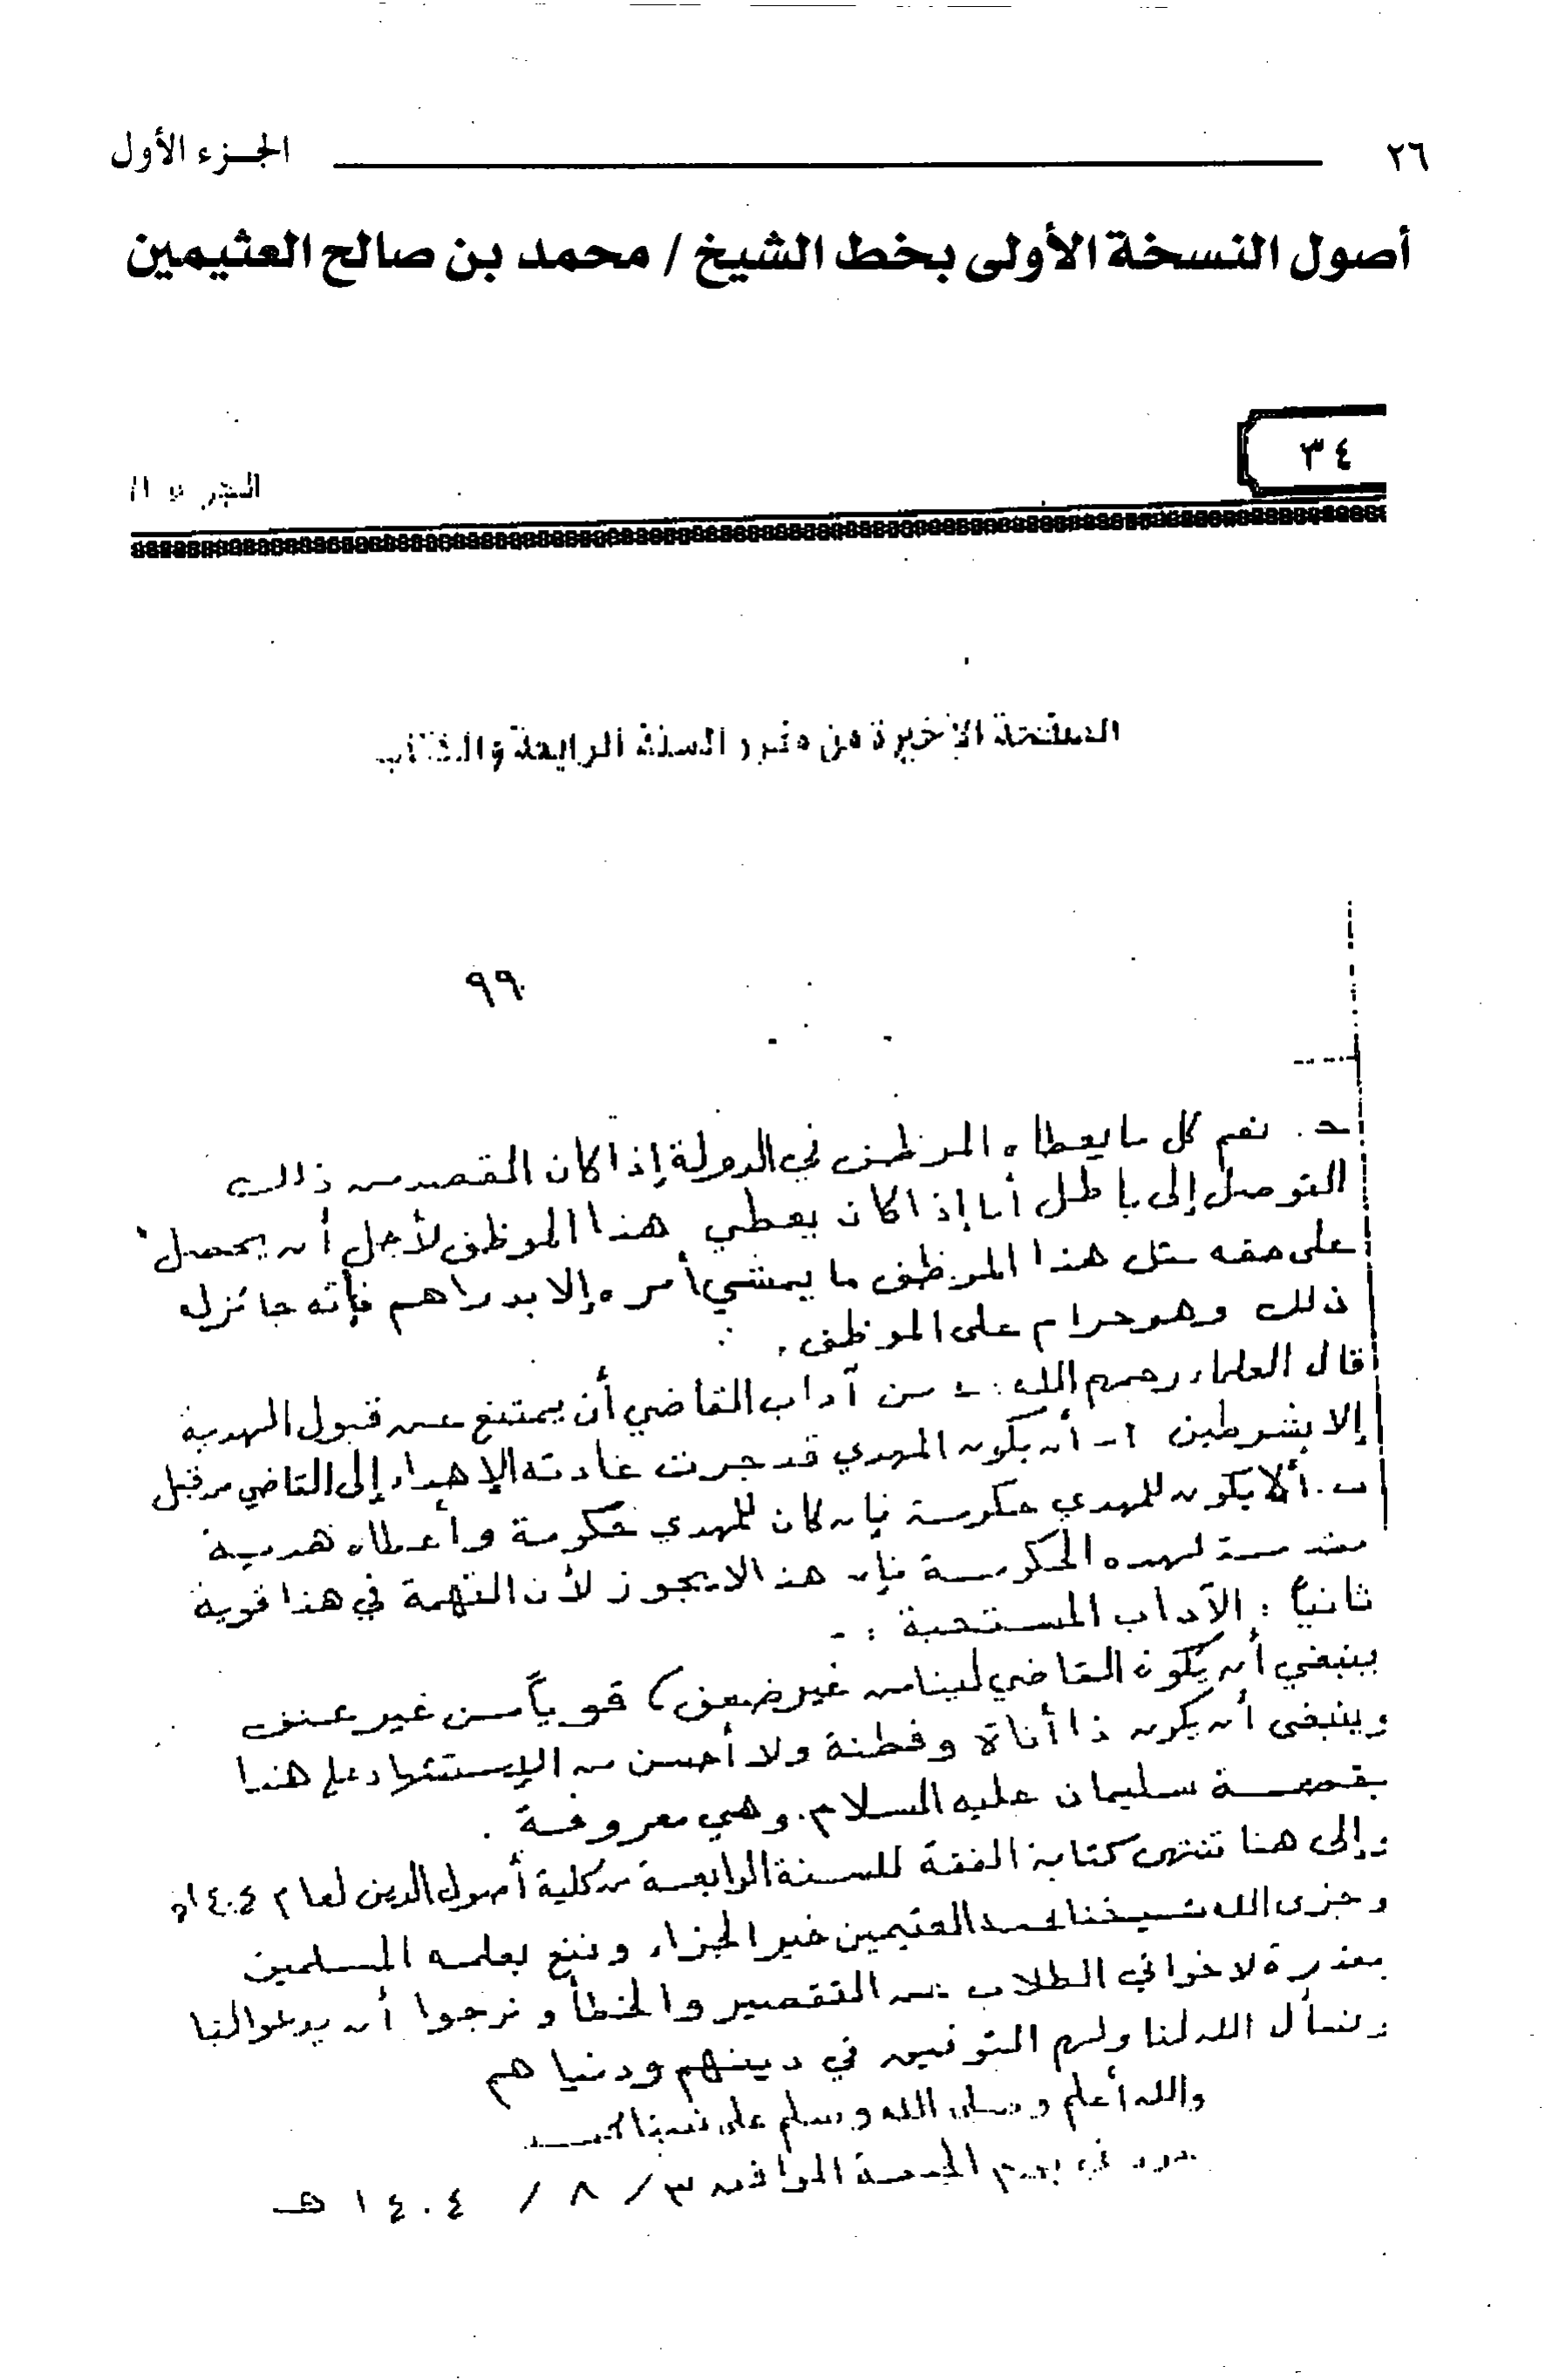 ٢٦ الجزء الأول
أصول النسخة الأولى بخط الشيخ / محمد بن صالح العثيمين
٣٤
الصفحة الأخيرة من مقرر السنة الرابعة
٩٩
حـ. نعم كل ما يعطاه الموظف في الدولة إذا كان القصد من ذلك
التوصل إلى باطل أما إذا كان يعطي هذا الموظف لأجل أن يحصل
على حقه مثل هذا الموظف ما يمشي أمره إلا بدراهم فإنه جائز له
ذلك وهو حرام على الموظف.
قال العلماء رحمهم الله :ـ من آداب القاضي أن يمتنع عن قبول الهدية
إلا بشرطين ١- أن يكون المهدي قد جرت عادته الإهداء إلى القاضي من قبل
ب. ألا يكون للمهدي حكومة فإن كان للمهدي حكومة وأعطاه هدية
مقدمة لهذه الحكومة فإن هذا لا يجوز لأن التهمة في هذا قوية
ثانياً : الآداب المستحبة :-
ينبغي أن يكون القاضي ليناً من غير ضعف، قوياً من غير عنف
وينبغي أن يكون ذا أناة وفطنة ولا أحسن من الإستشهاد على هذا
بقصة سليمان عليه السلام. وهي معروفة.
وإلى هنا تنتهي كتابة الفقه للسنة الرابعة من كلية أصول الدين لعام ١٤٠٤هـ
وجزى الله شيخنا محمد العثيمين خير الجزاء ونفع بعلمه المسلمين
معذرة لاخواني الطلاب عن التقصير والخطأ ونرجوا أن يدعوا لنا
ونسأل الله لنا ولهم التوفيق في دينهم ودنياهم
والله أعلم وصلى الله وسلم على نبينا محمد
في يوم الجمعة الموافق ٣ / ٨ / ١٤٠٤ هـ